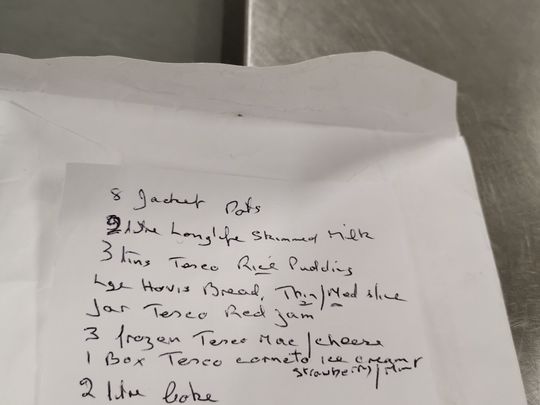 8 Jacket Pots
2 litre Longlife Skimmed Milk
3 tins Tesco Rice Pudding
Lge Hovis Bread, Thin/Med slice
Jar Tesco Red jam
3 frozen Tesco Mac/cheese
1 Box Tesco corneto ice cream
strawberry/Mint
2 litre Coke